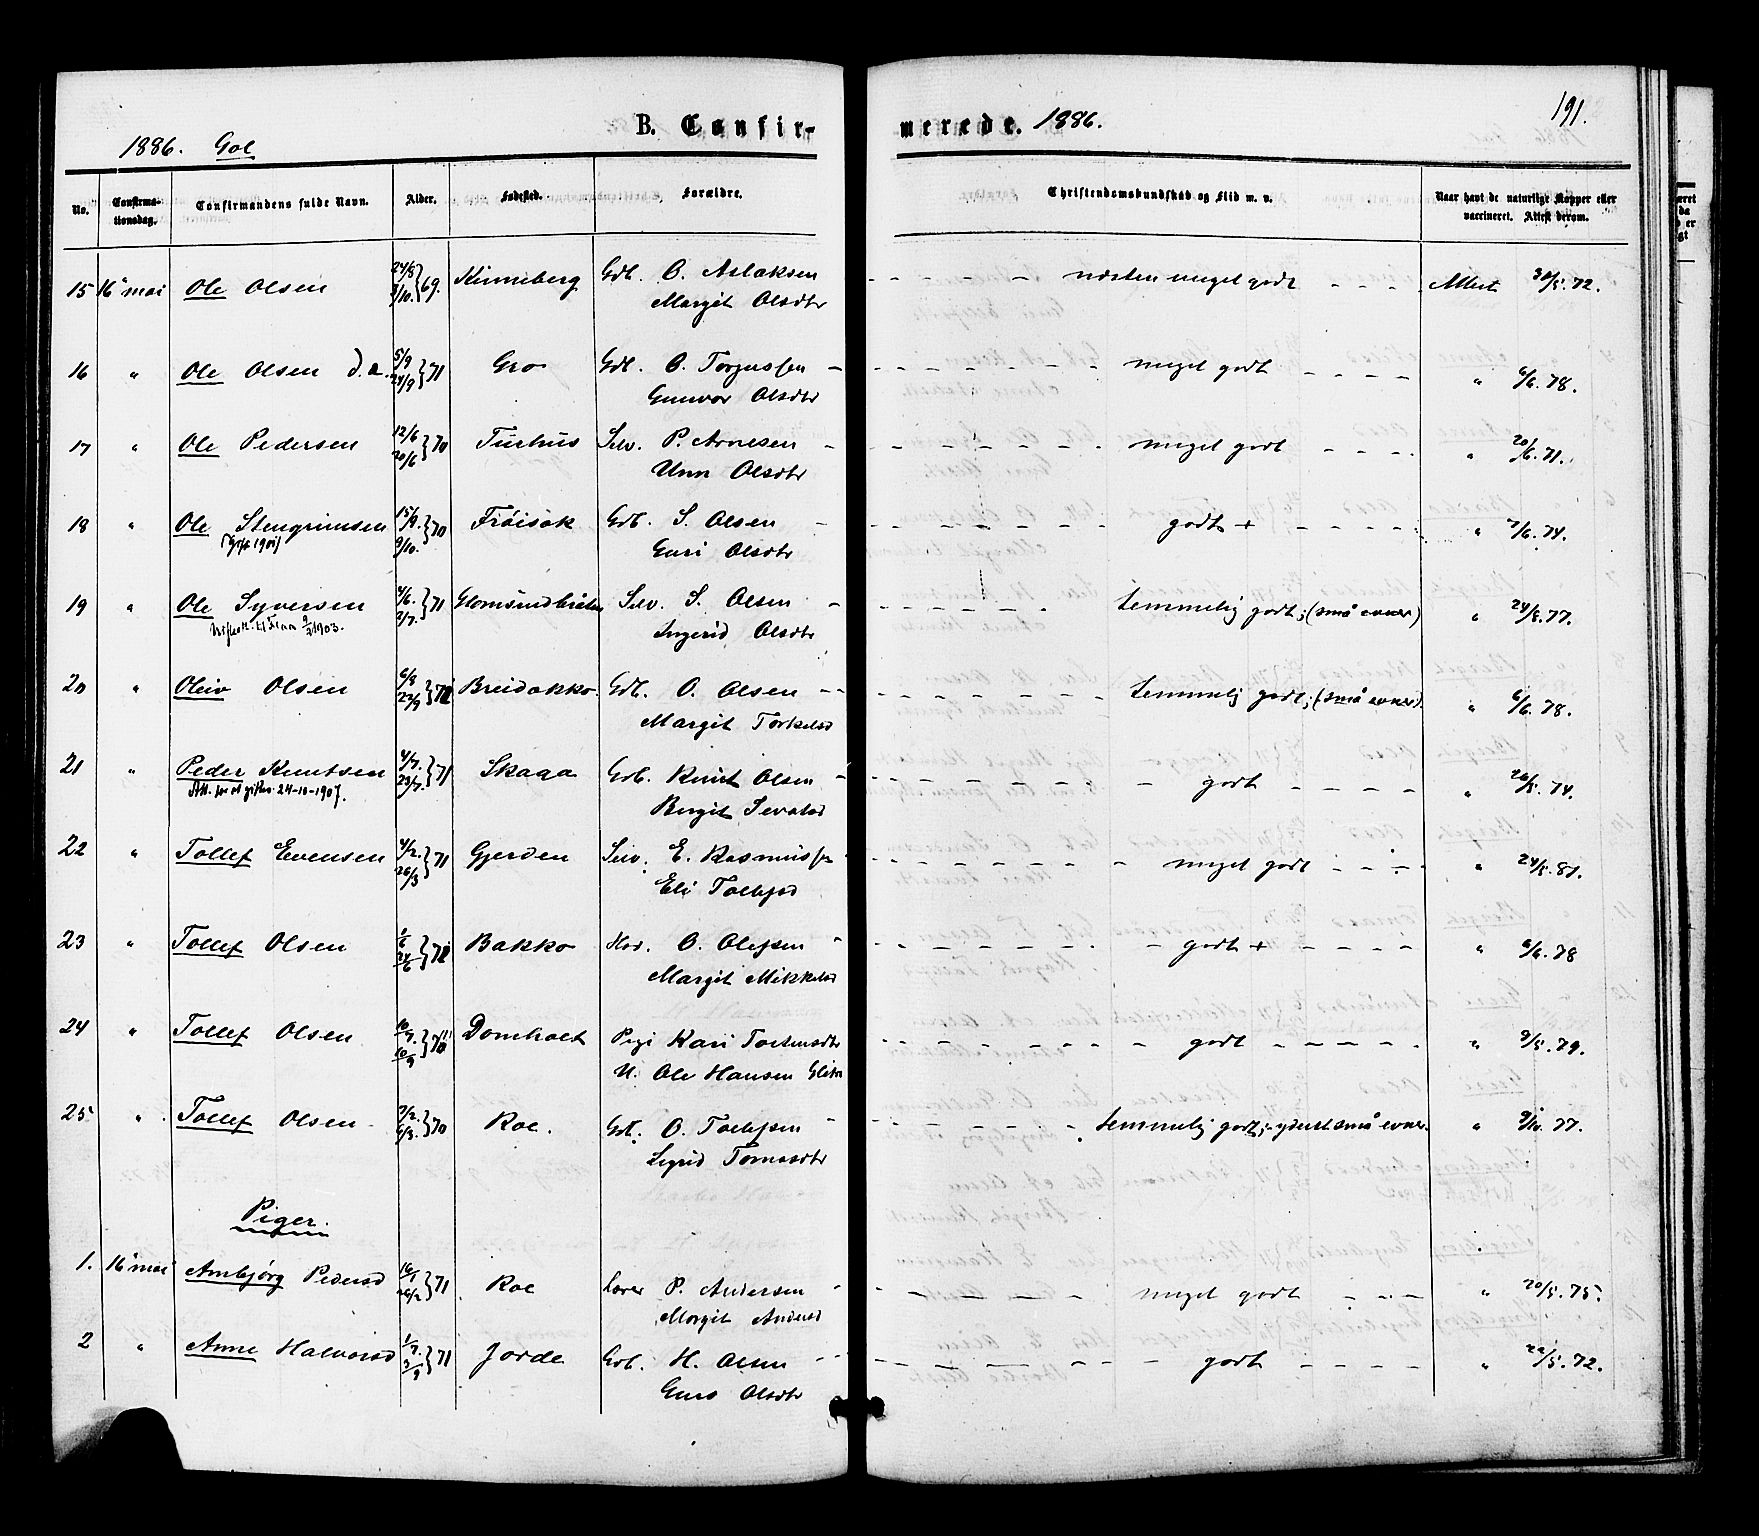 1886. Gol
B. Confir-
merede. 1886.
191.
No.
Confirma-
tionsdag.
Confirmandens fulde Navn.
Alder.
Fødested.
Forældre.
Christendomskundskab og Flid m. v.
Naar havt de naturlige Kopper eller
vaccineret. Attest derom.
15 16 mai Ole Olsen 24/8 9/10. } 69. Kinneberg Gdb. O. Aslaksen - - - - - næsten meget godt - - - Attest 30/5. 72.
Margit Olsdtr
16 " Ole Olsen d.æ. 5/9 24/9 } 71 Gro Gdb. O. Torgerssen - - - - - meget godt - - - - " 6/6. 78.
Gunvor Olsdtr
17 " Ole Pedersen 12/6 20/6 } 70 Turhus Selv. P. Arnesen - - - - - meget godt - - - - " 20/6. 71.
Unn Olsdtr
18 " Ole Stengrimsen 15/9. 9/10. } 70 Frøisok Gdb. S. Olsen - - - - - godt + - - - - " 7/6. 74.
(Gift 1901) Guri Olsdtr
19 " Ole Syversen 4/6. 2/7. } 71 Glomsundbråten Selv. S. Olsen - - - - - temmelig godt; (små evner) " 24/5. 77.
9/1903. Ingerid Olsdtr
20 " Oleiv Olsen 6/8 22/9 } 71 Breidokko. Gdb. O. Olsen - - temmelig godt; (små evner). " 6/6. 78.
Margit Torkelsd
21 " Peder Knutsen 4/7. 23/7. } 71 Skaga Gdb. Knut Olsen - - - - - godt - - - - " 26/5. 74.
24-10-1907. Birgit Sevatsd
22 " Tollef Evensen 4/2. 26/3 } 71 Gjerden Selv. E. Rasmussen - - - - - meget godt - - - " 24/5. 81.
Eli Tollefsd
23 " Tollef Olsen 1/6 24/6 } 71 Bakko Hus. O. Olefsen - - - - - godt + - - - - " 6/6. 78
Margit Mikkelsd
24 " Tollef Olsen 10/7. 10/9 } 70 Domholt Pigi Kari Tostensdtr - - - - - godt - - - - - " 9/5. 79.
U. Ole Hansen
25 " Tollef Olsen 7/2. 6/3. } 70 Roe. Gdb. O. Tollefsen - - - - - temmelig godt; yderst små evner. " 9/10. 77.
Sigrid Tomasdtr
Piger.
1. 16 mai Ambjørg Pedersd 16/1 26/2 } 71 Roe Lærer P. Andersen - - - - - meget godt - - - " 20/5. 75.
Margit Andersd
2 " Anne Halvorsd 1/7. 3/9 } 71 Jorde Gdb. H. Olsen - - - - - godt - - - - " 22/5. 72.
Guro Olsdtr